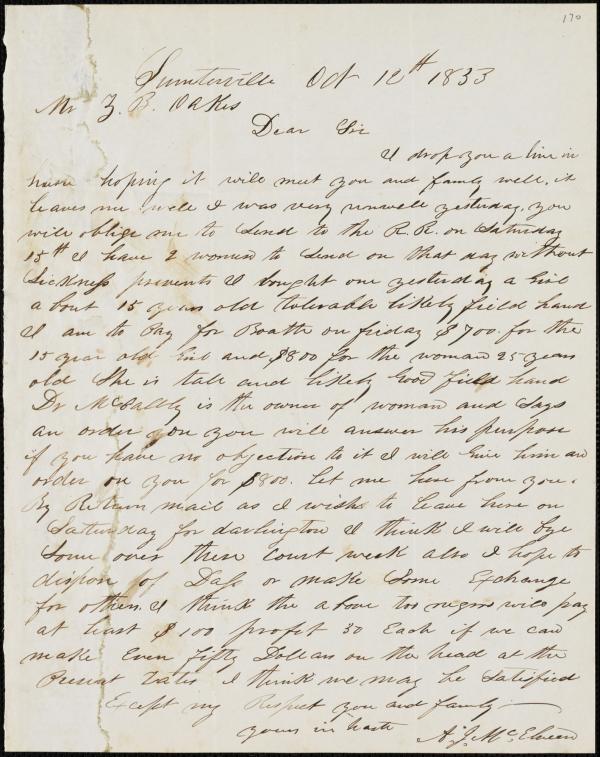 170
Sumterville Oct 12th 1853
Mr Z. B. Oakes
Dear Sir
I drop you a line in
hopeing it will meet you and family well. it
leaves me well I was very unwell yesterday. you
will oblige me to Send to the R. R. on Saturday
15th I have 2 women to Send on that day without
Sickness prevents I bought one yesterday a Girl
about 15 years old tolerable likely field hand
I am to Pay for Boath on friday $700. for the
15 year old Girl and $800 for the woman 25 years
old She is tall and likely Good field hand
Dr is the owner of woman and Says
an order on you will answer his purpose
if you have no objection to it I will Give him an
order on you for $800. Let me hear from you.
By Return mail as I wish to leave here on
Saturday for darlington I think I will bye
Some over there Court week also I hope to
dispose of or make Some Exchange
for others. I think the above too negros will pay
at least $100 profit 50 Each if we can
make Even fifty Dollars on the head at the
Present Rates I think we may be Satisfied
Except my Respect you and family
yours in hast
A. J. McElveen